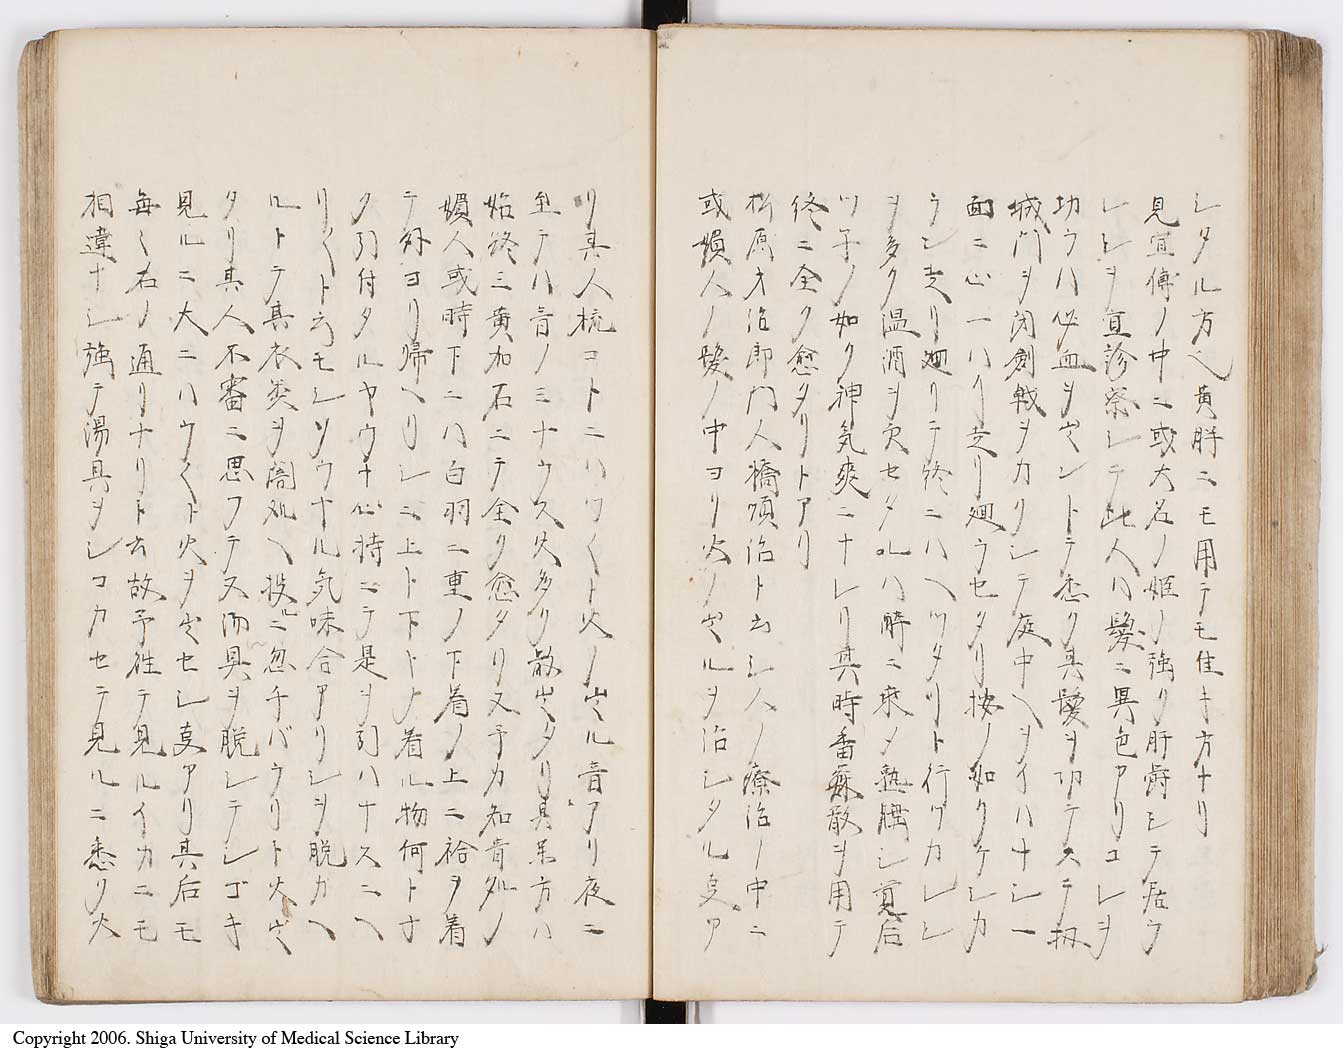 シタル方ヘ黄胖ニモ用テモ佳キ方ナリ
見宜傳ノ中ニ或大名ノ姫ノ強ク肝癪シテ居ケ
レシヲ宜診察シテ此人ハ髪ニ異色アリコレヲ
功ウハ必血ヲ出ントテ悉ク其髪ヲ切テステ扨
城門ヲ閉劍戟ヲカクシテ庭中ヘヲイハナシ一
面ニ心一ハリ走リ廻ウセタリ按ノ如クケシカ
ラシ走リ廻リテ終ニハヘツタリト行ヅカレシ
ヲ多ク温酒ヲ欠セタルハ酔ニ乘メ熟腄シ覚后
ツ子ノ如ク神気爽ニナレリ其時香蘇散ヲ用テ
終ニ全ク愈タリトアリ
松原才治郎門人橋順治ト云シ人ノ療治ノ中ニ
或媍人ノ髪ノ中ヨリ火ノ出ルヲ治シタル支ア
リ其人梳コトニハワ〱ト火ノ出ル音アリ夜ニ
至テハ音ノミナウス火多ク散出タリ其呆方ハ
始終三黄加石ニテ全ク愈タリ又予カ知音処ノ
媍人或時下ニハ白羽二重ノ下着ノ上ニ袷ヲ着
テ外ヨリ帰ヘリシニ上ト下トノ着ル物何トナ
ク引付タルヤウナ心持ニテ是ヲ引ハナスニヘ
リ〱ト云モシソウナル気味合アリシヲ脱カヘ
ルトテ其衣類ヲ闇処ヘ投ルニ忽チバウリト火出
タリ其人不審ニ思フテ又湯具ヲ脱シテシゴキ
見ルニ大ニハウ〱ト火ヲ出セシ支アリ其后モ
毎〻右ノ通リナリト云故予性テ見ルイカニモ
相違ナシ強テ湯具ヲシコカセテ見ルニ悉ク火
Copyright 2006. Shiga University of Medical Science Library